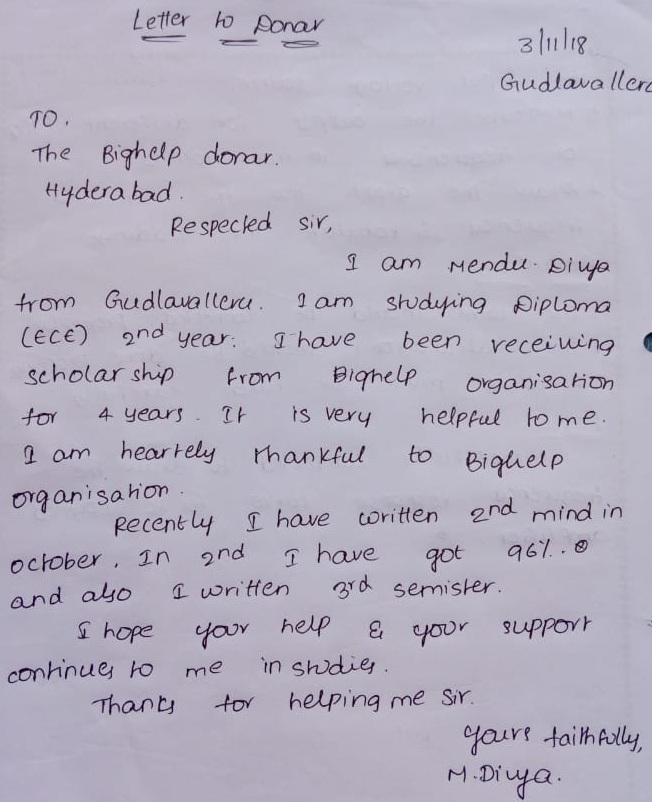 Letter to Donar
3/11/18
Gudlavalleru
TO.
The Bighelp donar.
Hyderabad.
Respected sir,
I am Mendu. Divya
from Gudlavalleru. I am studying Diploma
(ECE) 2nd year. I have been receiving
scholar ship from Bighelp organisation
for 4 years. It is very helpful to me.
I am heartely thankful to Bighelp
organisation.
Recently I have written 2nd mind in
october. In 2nd I have got 96%.
and also I written 3rd semister.
I hope your help & your support
continues to me in studies.
Thanks for helping me sir.
yours faithfully,
M.Divya.